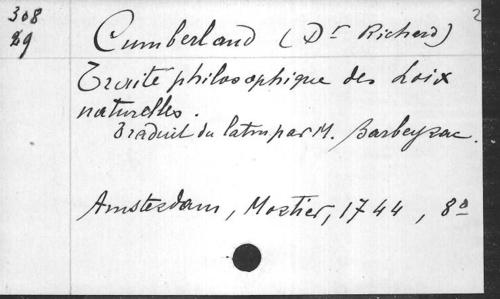 308
29
2
Cumberland (Dr Richard)
Traité philosophique des Loix
naturelles.
Traduit du latin par M. Barbeyrac.
Amsterdam, Mortier, 1744, 8º